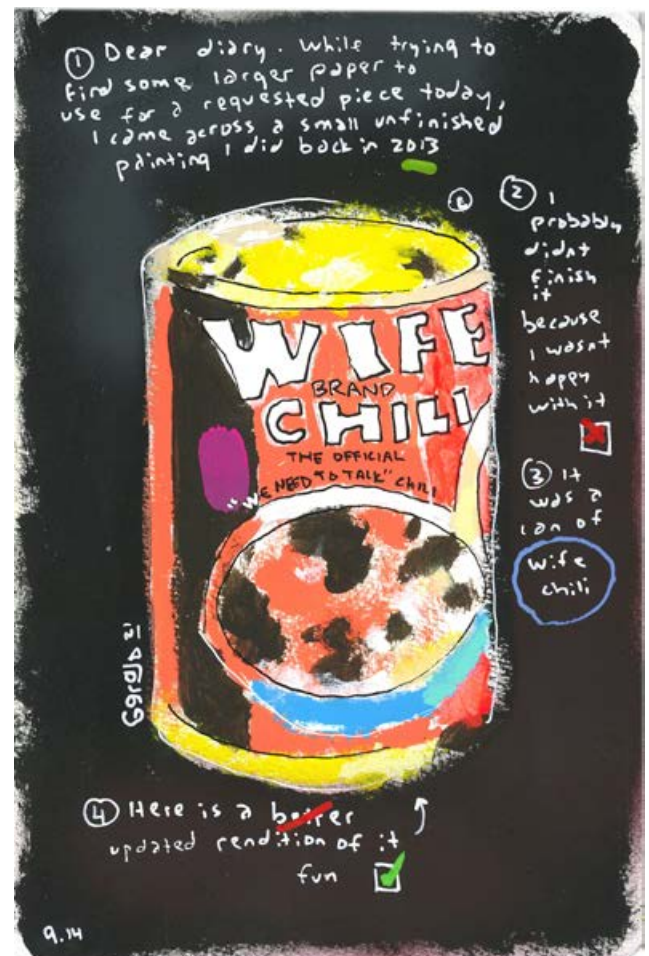 1 Dear diary. While trying to
find some larger paper to
use for a requested piece today,
I came across a small unfinished
painting I did back in 2013
2 I
probably
didnt
finish
it
because
I wasnt
happy
with it
3 It
was a
can of
wife
chili
WIFE
BRAND
CHILI
THE OFFICIAL
"WE NEED TO TALK" CHILI
4 Here is a better
updated rendition of it
fun
9.14